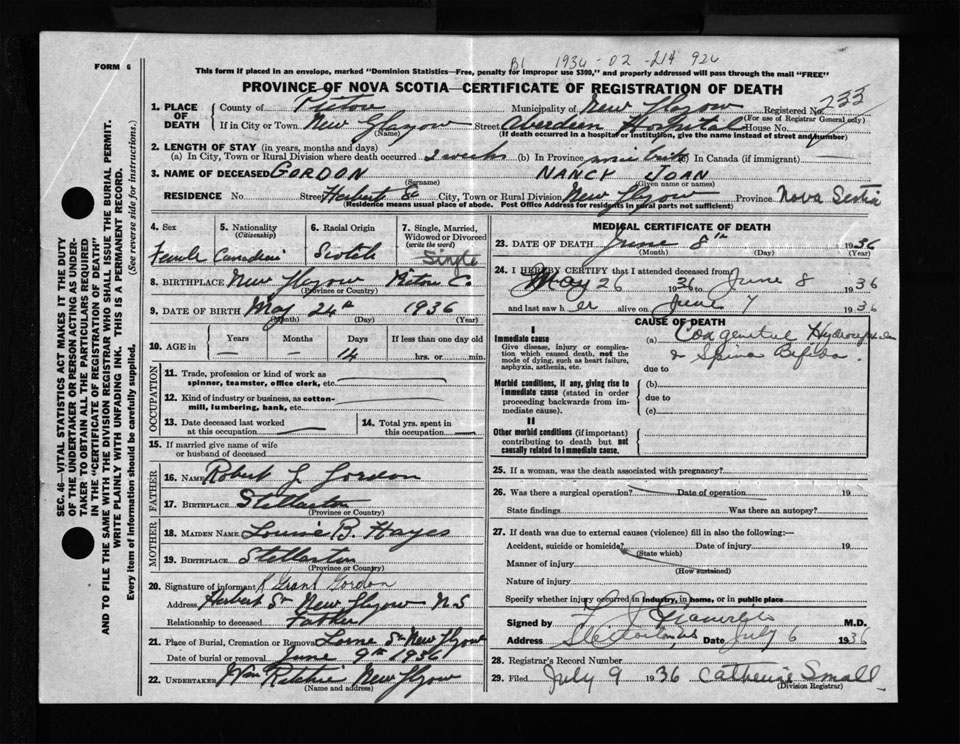 FORM 6
1936 - 02 - 214 926
This form if placed in an envelope, marked "Dominion Statistics—Free, penalty for improper use $300," and properly addressed will pass through the mail "FREE"
PROVINCE OF NOVA SCOTIA—CERTIFICATE OF REGISTRATION OF DEATH
1. PLACE OF DEATH County of Pictou Municipality of New Glasgow Registered No. 233
(For use of Registrar General only)
If in City or Town New Glasgow Street Aberdeen Hospital House No.
(Name) (If death occurred in a hospital or institution, give the name instead of street and number)
2. LENGTH OF STAY (in years, months and days)
(a) In City, Town or Rural Division where death occurred 2 weeks (b) In Province since birth (c) In Canada (if immigrant)
3. NAME OF DECEASED GORDON NANCY JOAN
(Surname) (Given name or names)
RESIDENCE No. Street Herbert St City, Town or Rural Division New Glasgow Province Nova Scotia
(Residence means usual place of abode. Post Office Address for residents in rural parts not sufficient)
4. Sex 5. Nationality (Citizenship) 6. Racial Origin 7. Single, Married, Widowed or Divorced (write the word)
Female Canadian Scotch Single
8. BIRTHPLACE New Glasgow Pictou C.
(Province or Country)
9. DATE OF BIRTH May 24th 1936
(Month) (Day) (Year)
10. AGE in Years Months Days If less than one day old
— — 14 hrs. or min.
OCCUPATION
11. Trade, profession or kind of work as spinner, teamster, office clerk, etc.
12. Kind of industry or business, as cotton-mill, lumbering, bank, etc.
13. Date deceased last worked at this occupation 14. Total yrs. spent in this occupation
15. If married give name of wife or husband of deceased
FATHER
16. NAME Robert G. Gordon
17. BIRTHPLACE Stellarton
(Province or Country)
MOTHER
18. MAIDEN NAME Louise B. Hayes
19. BIRTHPLACE Stellarton
(Province or Country)
20. Signature of informant R Grant Gordon
Address Herbert St New Glasgow N.S
Relationship to deceased Father
21. Place of Burial, Cremation or Removal Lorne St New Glasgow
Date of burial or removal June 9th 1936
22. UNDERTAKER Ritchie New Glasgow
(Name and address)
MEDICAL CERTIFICATE OF DEATH
23. DATE OF DEATH June 8th 1936
(Month) (Day) (Year)
24. I HEREBY CERTIFY that I attended deceased from
May 26 1936 to June 8 1936
and last saw her alive on June 7 1936
CAUSE OF DEATH
I
Immediate cause
Give disease, injury or complication which caused death, not the mode of dying, such as heart failure, asphyxia, asthenia, etc.
(a) Congenital Hydrocephalus
& Spina Bifida.
due to
Morbid conditions, if any, giving rise to immediate cause (stated in order proceeding backwards from immediate cause).
(b)
due to
(c)
II
Other morbid conditions (if important) contributing to death but not causally related to immediate cause.
25. If a woman, was the death associated with pregnancy?
26. Was there a surgical operation? Date of operation 19
State findings Was there an autopsy?
27. If death was due to external causes (violence) fill in also the following:
Accident, suicide or homicide? Date of injury 19
(State which)
Manner of injury
(How sustained)
Nature of injury
Specify whether injury occurred in industry, in home, or in public place
Signed by M.D.
Address Date July 6 1936
28. Registrar's Record Number
29. Filed July 9 1936 Catherine Small
(Division Registrar)
SEC. 46—VITAL STATISTICS ACT MAKES IT THE DUTY
OF THE UNDERTAKER OR PERSON ACTING AS UNDER-
TAKER TO OBTAIN ALL THE PARTICULARS REQUIRED
IN THE "CERTIFICATE OF REGISTRATION OF DEATH"
AND TO FILE THE SAME WITH THE DIVISION REGISTRAR WHO SHALL ISSUE THE BURIAL PERMIT.
WRITE PLAINLY WITH UNFADING INK. THIS IS A PERMANENT RECORD.
Every item of information should be carefully supplied. (See reverse side for instructions.)